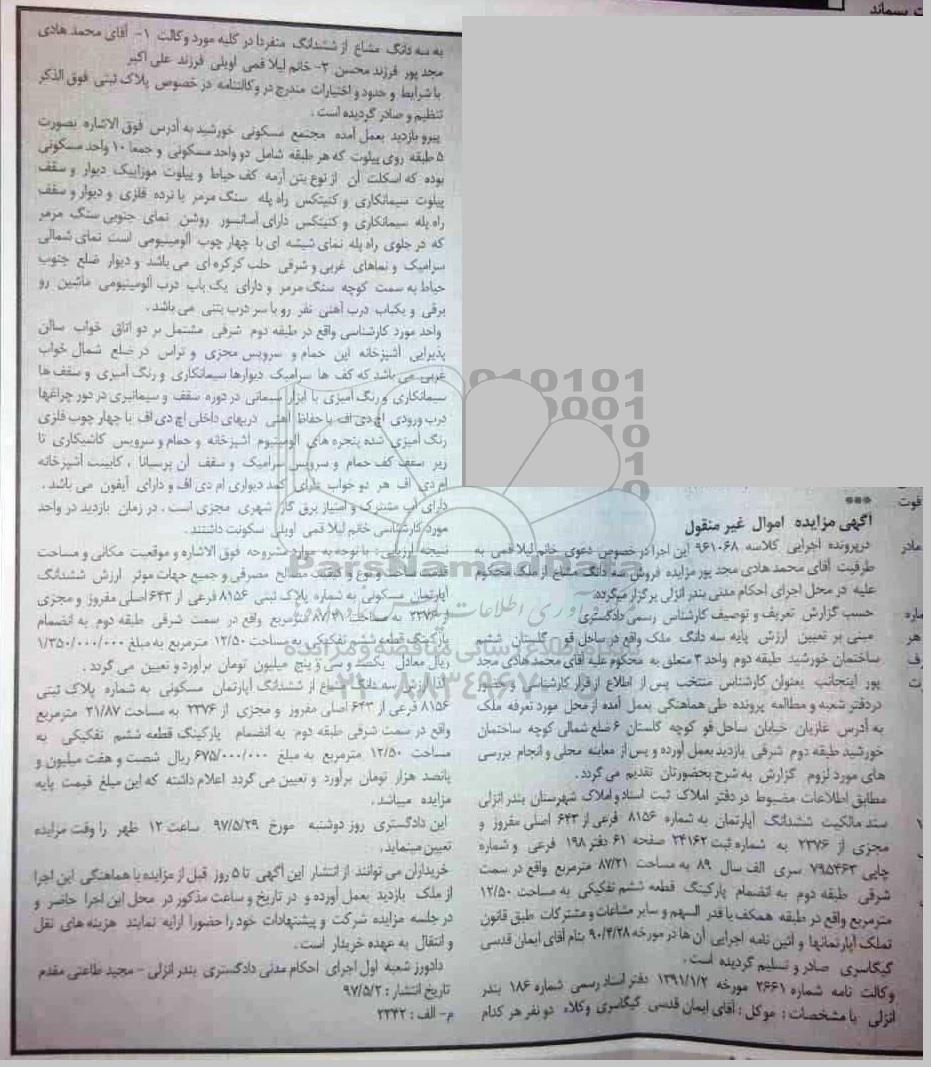 ت پسماند
فوت
مادر
ماره
هر
***
آگهی مزایده اموال غیر منقول
درپرونده اجرایی کلاسه ۹۶۱۰۶۸ این اجرا درخصوص دعوی خانم لیلا قمی به
طرفیت آقای محمد هادی مجد پور مزایده فروش سه دانگ مشاع از ملک محکوم
علیه در محل اجرای احکام مدنی بندر انزلی برگزار میگردد.
حسب گزارش تعریف و توصیف کارشناس رسمی دادگستری
مبنی بر تعیین ارزش پایه سه دانگ ملک واقع در ساحل قو گلستان ششم
ساختمان خورشید طبقه دوم واحد ۳ متعلق به محکوم علیه آقای محمد هادی مجد
پور اینجانب بعنوان کارشناس منتخب پس از اطلاع از قرار کارشناسی و حضور
دردفتر شعبه و مطالعه پرونده طی هماهنگی بعمل آمده از محل مورد تعرفه ملک
به آدرس غازیان خیابان ساحل قو کوچه گلستان ۶ ضلع شمالی کوچه ساختمان
خورشید طبقه دوم شرقی بازدید بعمل آورده و پس از معاینه محلی و انجام بررسی
های مورد لزوم گزارش به شرح بحضورتان تقدیم می گردد.
مطابق اطلاعات مضبوط در دفتر املاک ثبت اسناد و املاک شهرستان بندر انزلی
سند مالکیت ششدانگ آپارتمان به شماره ۸۱۵۶ فرعی از ۶۴۳ اصلی مفروز و
مجزی از ۲۳۷۶ به شماره ثبت ۲۴۱۶۲ صفحه ۶۱ دفتر ۱۹۸ فرعی و شماره
چاپی ۷۹۵۴۶۳ سری الف سال ۸۹ به مساحت ۸۷/۲۱ مترمربع واقع در سمت
شرقی طبقه دوم به انضمام پارکینگ قطعه ششم تفکیکی به مساحت ۱۲/۵۰
مترمربع واقع در طبقه همکف با قدر السهم و سایر مشاعات و مشترکات طبق قانون
تملک آپارتمانها و آئین نامه اجرایی آن ها در مورخه ۹۰/۴/۲۸ بنام آقای ایمان قدسی
گیگاسری صادر و تسلیم گردیده است.
وکالت نامه شماره ۲۶۶۱ مورخه ۱۳۹۱/۱/۲ دفتر اسناد رسمی شماره ۱۸۶ بندر
انزلی با مشخصات : موکل : آقای ایمان قدسی گیگاسری وکلاء دو نفر هر کدام
به سه دانگ مشاع از ششدانگ منفردا در کلیه مورد وکالت ۱- آقای محمد هادی
مجد پور فرزند محسن ۲- خانم لیلا قمی اویلی فرزند علی اکبر
با شرایط و حدود و اختیارات مندرج در وکالتنامه در خصوص پلاک ثبتی فوق الذکر
تنظیم و صادر گردیده است .
پیرو بازدید بعمل آمده مجتمع مسکونی خورشید به آدرس فوق الاشاره بصورت
۵ طبقه روی پیلوت که هر طبقه شامل دو واحد مسکونی و جمعا ۱۰ واحد مسکونی
بوده که اسکلت آن از نوع بتن آرمه کف حیاط و پیلوت موزاییک دیوار و سقف
پیلوت سیمانکاری و کنیتکس راه پله سنگ مرمر با نرده فلزی و دیوار و سقف
راه پله سیمانکاری و کنیتکس دارای آسانسور روشن نمای جنوبی سنگ مرمر
که در جلوی راه پله نمای شیشه ای با چهار چوب آلومینیومی است نمای شمالی
سرامیک و نماهای غربی و شرقی حلب کرکره ای می باشد و دیوار ضلع جنوب
حیاط به سمت کوچه سنگ مرمر و دارای یک باب درب آلومینیومی ماشین رو
برقی و یکباب درب آهنی نفر رو با سر درب بتنی می باشد .
واحد مورد کارشناسی واقع در طبقه دوم شرقی مشتمل بر دو اتاق خواب سالن
پذیرایی آشپزخانه این حمام و سرویس مجزی و تراس در ضلع شمال خواب
غربی می باشد که کف ها سرامیک دیوارها سیمانکاری و رنگ آمیزی و سقف ها
سیمانکاری و رنگ آمیزی با ابزار سیمانی در دوره سقف و سیمانبری در دور چراغها
درب ورودی اچ دی اف با حفاظ آهنی دربهای داخلی اچ دی اف با چهار چوب فلزی
رنگ آمیزی شده پنجره های آلومینیوم آشپزخانه و حمام و سرویس کاشیکاری تا
زیر سقف کف حمام و سرویس سرامیک و سقف آن پرسیانا ، کابینت آشپزخانه
ام دی اف هر دو خواب دارای کمد دیواری ام دی اف و دارای آیفون می باشد .
دارای آب مشترک و امتیاز برق گاز شهری مجزی است . در زمان بازدید در واحد
مورد کارشناسی خانم لیلا قمی اویلی سکونت داشتند.
نتیجه ارزیابی : با توجه به موارد مشروحه فوق الاشاره و موقعیت مکانی و مساحت
قدمت ساخت و نوع و کیفیت مصالح مصرفی و جمیع جهات موثر ارزش ششدانگ
آپارتمان مسکونی به شماره پلاک ثبتی ۸۱۵۶ فرعی از ۶۴۳ اصلی مفروز و مجزی
از ۲۳۷۶ به مساحت ۸۷/۲۱ مترمربع واقع در سمت شرقی طبقه دوم به انضمام
پارکینگ قطعه ششم تفکیکی به مساحت ۱۲/۵۰ مترمربع به مبلغ ۱/۳۵۰/۰۰۰/۰۰۰
ریال معادل یکصد و سی و پنج میلیون تومان برآورد و تعیین می گردد .
لذا ارزش سه دانگ مشاع از ششدانگ آپارتمان مسکونی به شماره پلاک ثبتی
۸۱۵۶ فرعی از ۶۴۳ اصلی مفروز و مجزی از ۲۳۷۶ به مساحت ۲۱/۸۷ مترمربع
واقع در سمت شرقی طبقه دوم به انضمام پارکینگ قطعه ششم تفکیکی به
مساحت ۱۲/۵۰ مترمربع به مبلغ ۶۷۵/۰۰۰/۰۰۰ ریال شصت و هفت میلیون و
پانصد هزار تومان برآورد و تعیین می گردد اعلام داشته که این مبلغ قیمت پایه
مزایده میباشد.
این دادگستری روز دوشنبه مورخ ۹۷/۵/۲۹ ساعت ۱۲ ظهر را وقت مزایده
تعیین مینماید.
خریداران می توانند از انتشار این آگهی تا ۵ روز قبل از مزایده با هماهنگی این اجرا
از ملک بازدید بعمل آورده و در تاریخ و ساعت مذکور در محل این اجرا حاضر و
در جلسه مزایده شرکت و پیشنهادات خود را حضورا ارایه نمایند هزینه های نقل
و انتقال به عهده خریدار است .
دادورز شعبه اول اجرای احکام مدنی دادگستری بندر انزلی - مجید طاعتی مقدم
تاریخ انتشار : ۹۷/۵/۲
م- الف : ۲۳۴۲
ParsNamadData